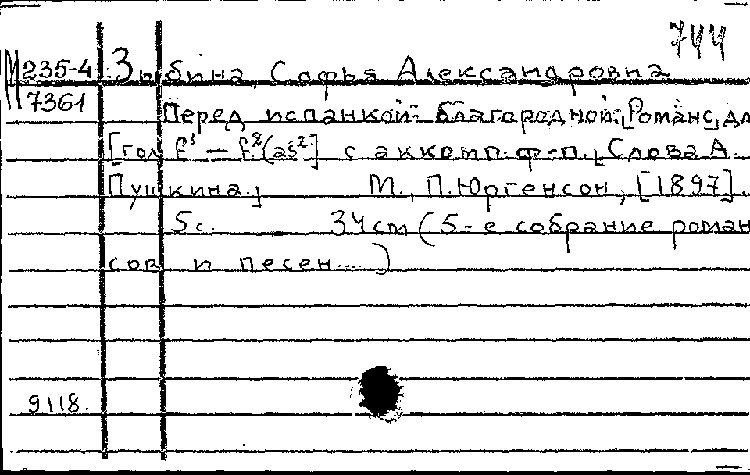 744
М 235-4 Зыбина, Софья Александровна
7361 Перед испанкой благородной. [Романс] для
[гол. f¹ – f²(as²)] с аккомп. ф-п., [Слова А.
Пушкина.] М., П. Юргенсон, [1897].
5 с. 34 cm (5-е собрание роман
сов и песен...)
9118.